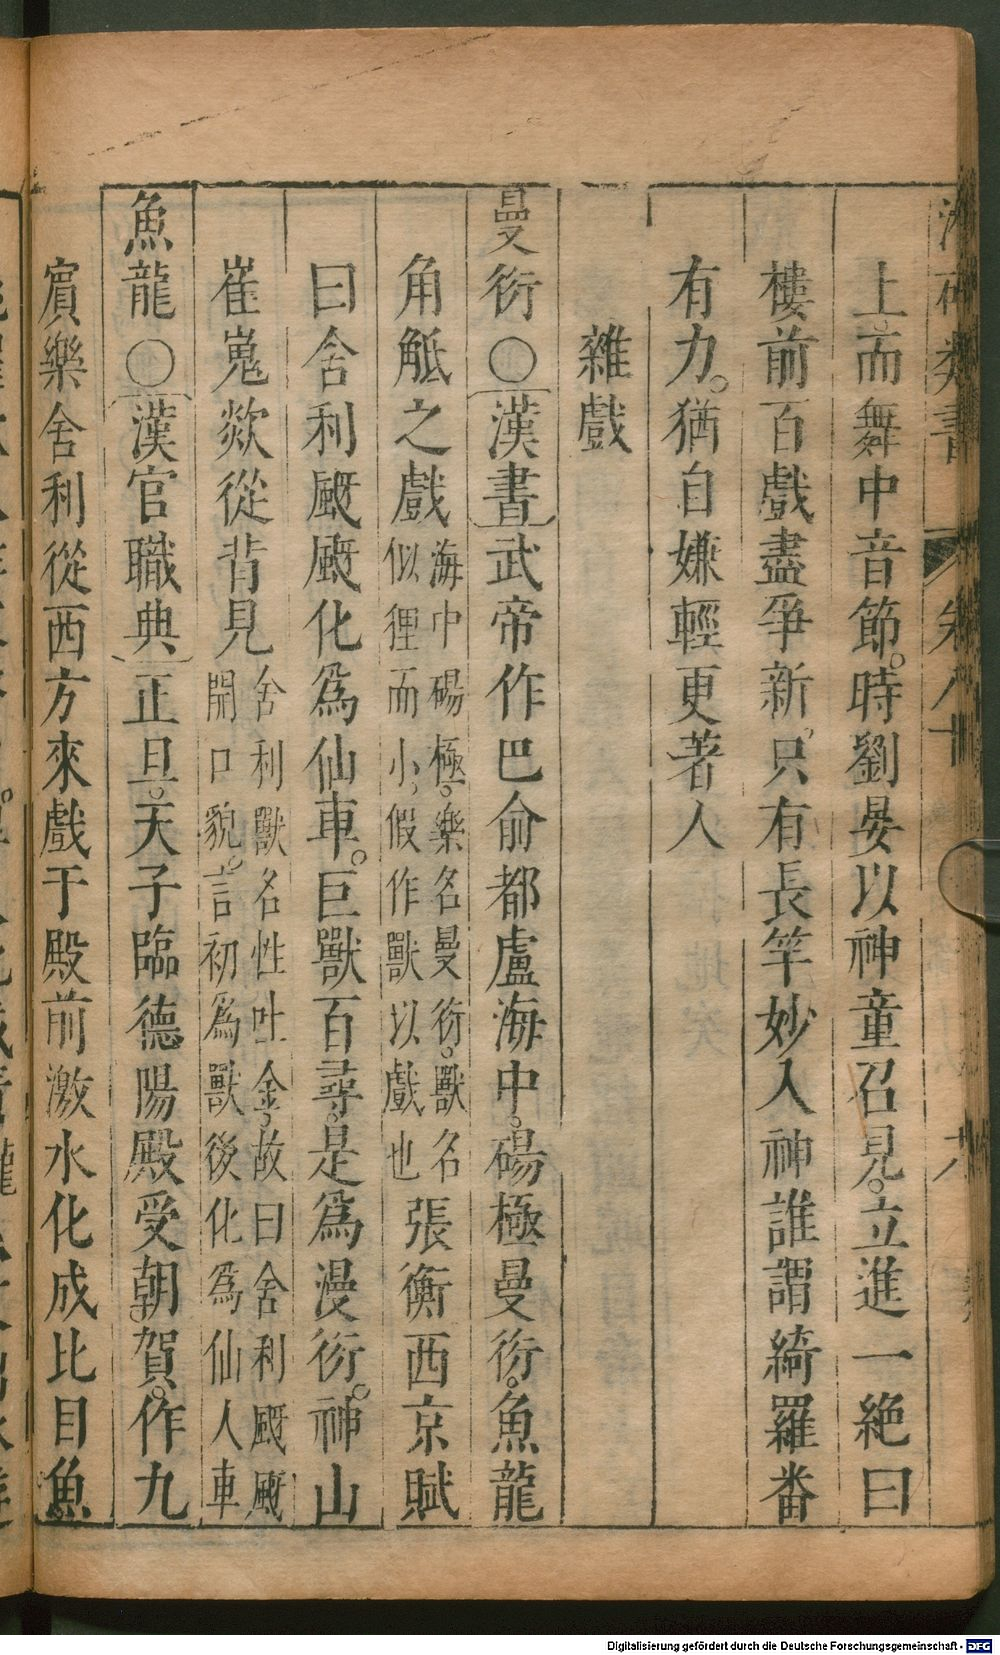 類書
上而舞中音節。時劉晏以神童召見。立進一絶曰
樓前百戲盡爭新只有長竿妙入神誰謂綺羅番
有力。猶自嫌輕更著人
雜戲
曼衍〇漢書武帝作巴俞都盧海中。碭極曼衍。魚龍
角觝之戲海中碭極。樂名曼衍。獸名似狸而小,假作獸以戲也張衡西京賦
曰舍利颬颬化爲仙車。巨獸百尋。是爲漫衍。神山
崔嵬欻從背見舍利獸名性吐金,故曰舍利颬颬開口貌。言初爲獸後化爲仙人車
魚龍〇漢官職典正旦。天子臨德陽殿受朝賀。作九
賓樂舍利從西方來戲于殿前激水化成比目魚
Digitalisierung gefördert durch die Deutsche Forschungsgemeinschaft - DFG